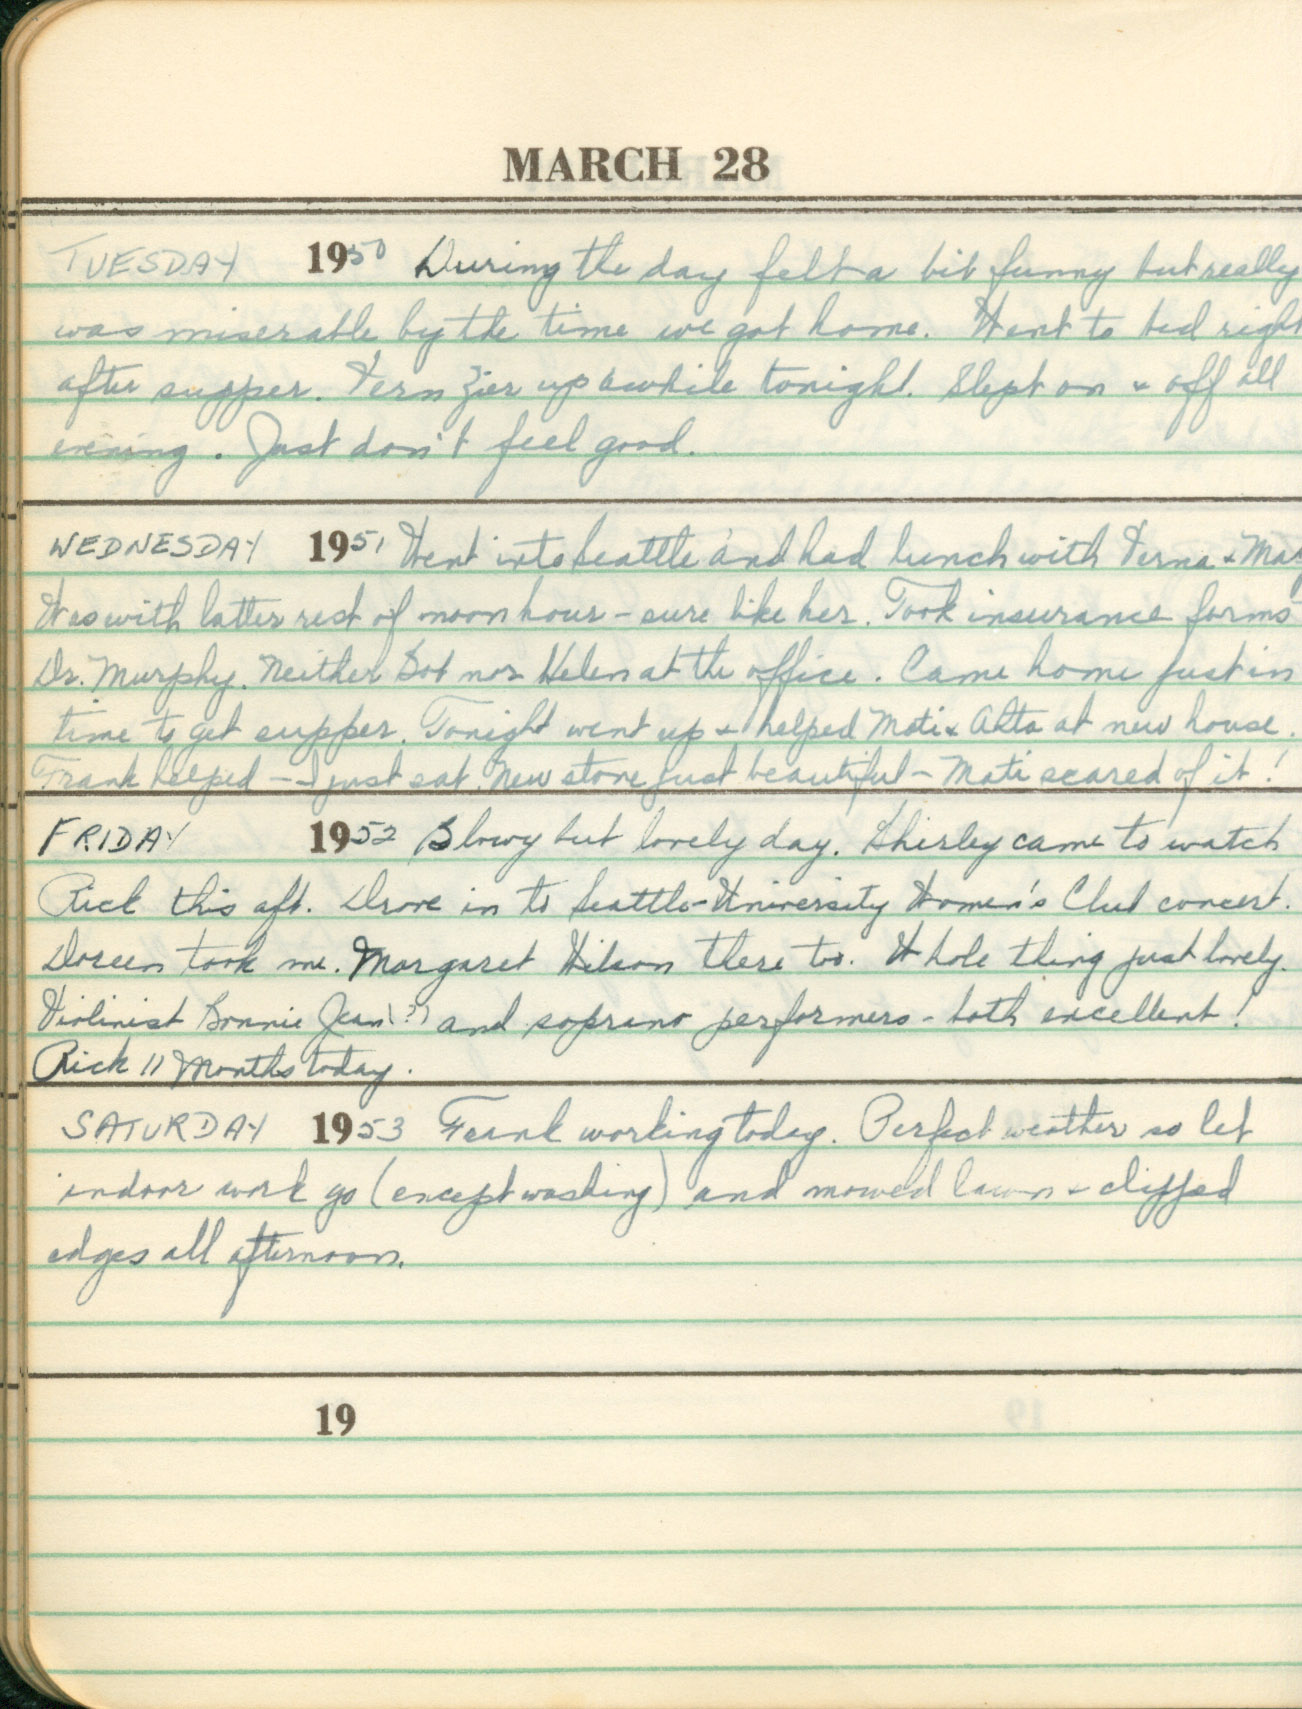 MARCH 28
TUESDAY 1950 During the day felt a bit funny but really
was miserable by the time we got home. Went to bed right
after supper. Fern Zier up awhile tonight. Slept on & off all
evening. Just don't feel good.
WEDNESDAY 1951 Went into Seattle and had lunch with Verna &
Was with latter rest of noon hour - sure like her. Took insurance forms
Dr. Murphy. Neither Dot nor Helen at the office. Came home just in
time to get supper. Tonight went up & helped Moti & Alta at new house.
Frank helped - I just sat. New stove just beautiful - Moti scared of it!
FRIDAY 1952 Blowy but lovely day. Shirley came to watch
Rick this aft. Drove in to Seattle - University Women's Club concert.
Doreen took me. Margaret Wilson there too. Whole thing just lovely.
Violinist Bonnie Jean (?) and soprano performers - both excellent!
Rick 11 Months today.
SATURDAY 1953 Frank working today. Perfect weather so let
indoor work go (except washing) and mowed lawn & clipped
edges all afternoon.
19